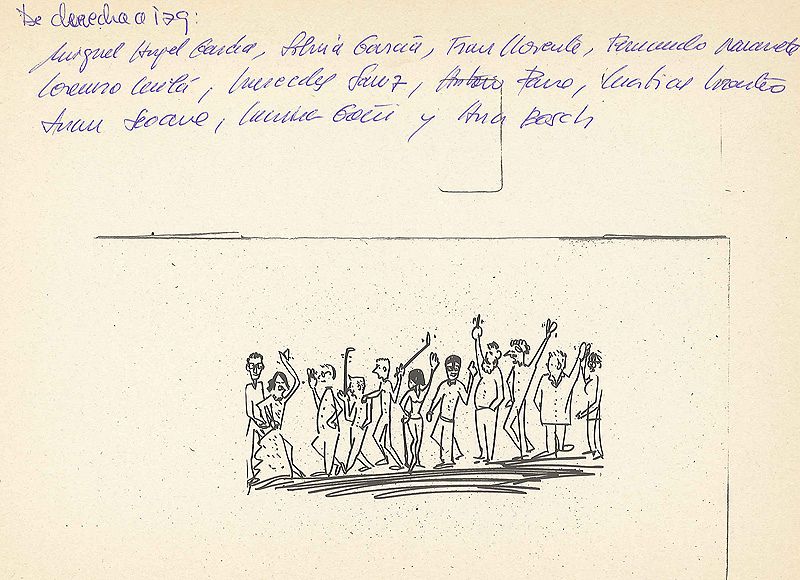 De derecha a izq:
Miguel Angel Garcia, Silvia García, Fran Llorente, Fernando Navarrete
Lorenzo Milá, Mercedes Sanz, Antonio Parra, Matias
Juan Seoane, Marina Goñi y Ana Bosch